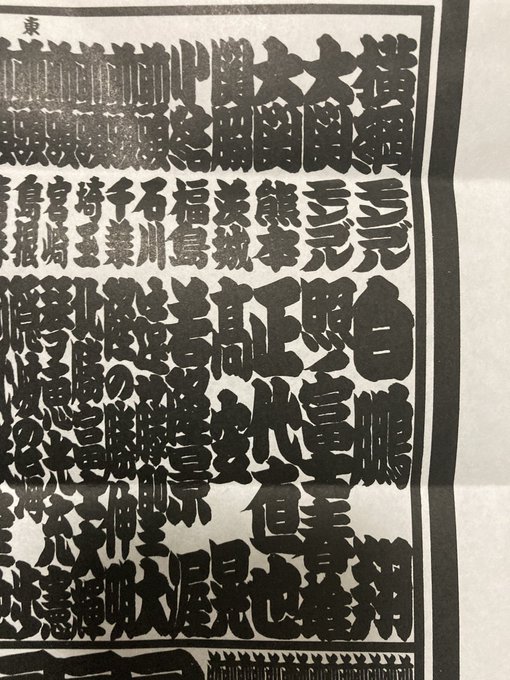 東
横綱 モンゴル 白鵬翔
大関 モンゴル 照ノ富士春雄
大関 熊本 正代直也
関脇 茨城 髙安晃
小結 福島 若隆景渥
前頭 石川 遠藤聖大
前頭 千葉 隆の勝伸明
前頭 埼玉 北勝富士大輝
前頭 宮崎 琴恵光充憲
前頭 島根 隠岐の海歩